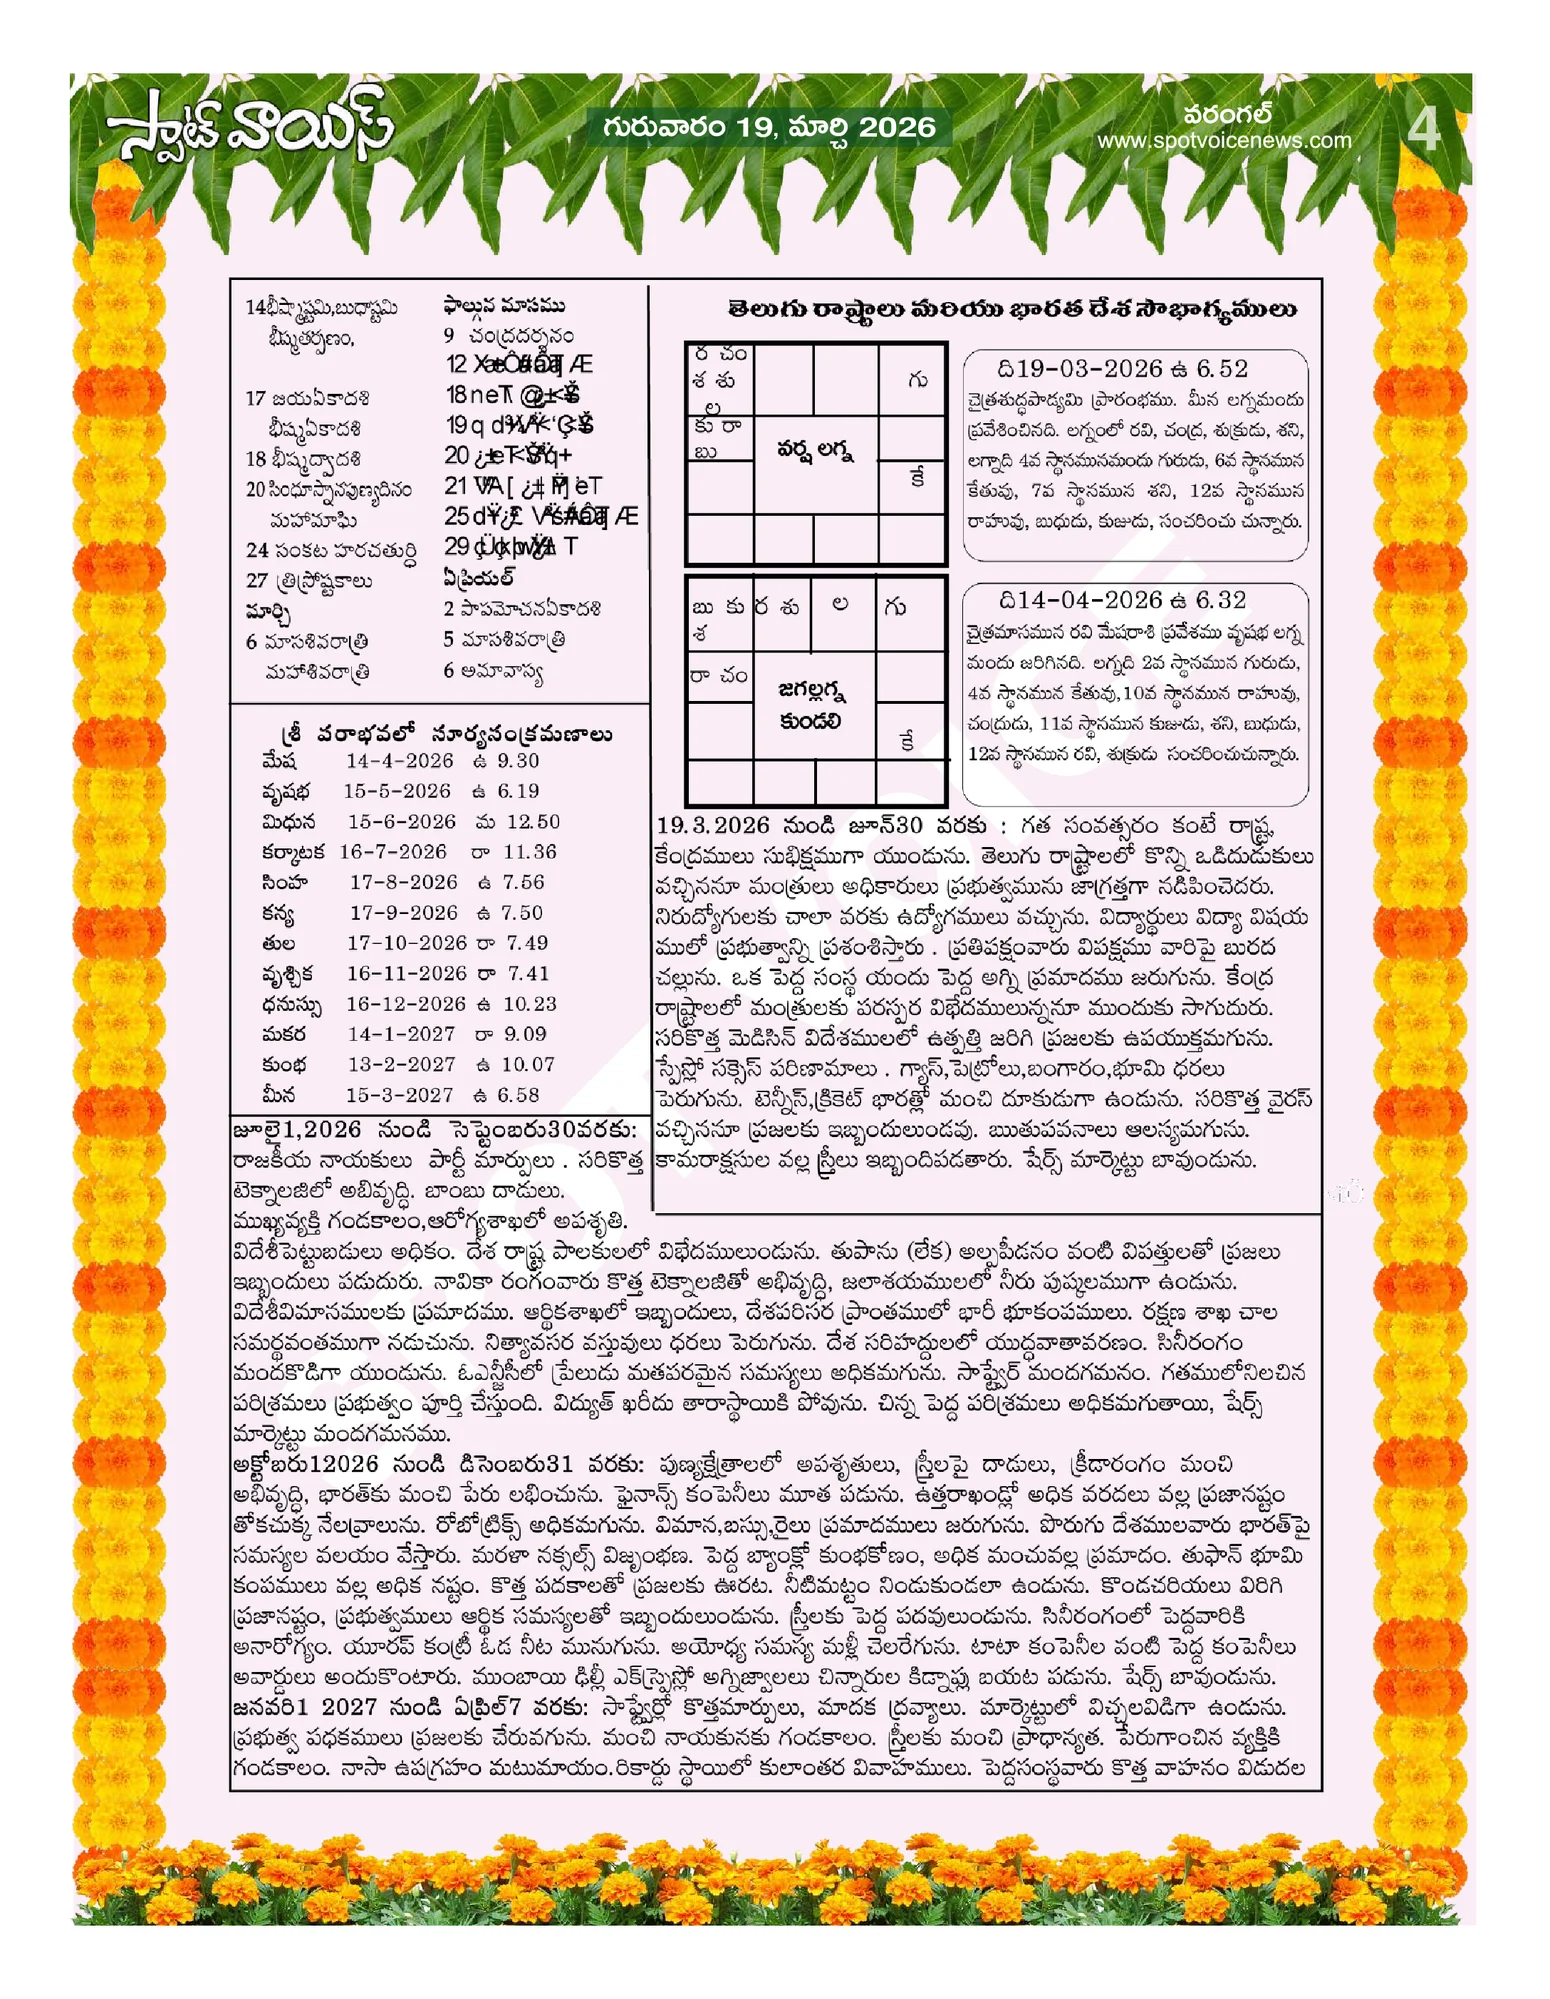 స్పాట్ వాయిస్
గురువారం 19, మార్చి 2026
వరంగల్
www.spotvoicenews.com
4
14భీష్మాష్టమి,బుధాష్టమి
భీష్మతర్పణం,
17 జయఏకాదశి
భీష్మఏకాదశి
18 భీష్మద్వాదశి
20 సింధూస్నానపుణ్యదినం
మహామాఘి
24 సంకట హరచతుర్థి
27 త్రిస్రోష్టకాలు
మార్చి
6 మాసశివరాత్రి
మహాశివరాత్రి
ఫాల్గున మాసము
9 చంద్రదర్శనం
12
18
19
20
21
25
29
ఏప్రియల్
2 పాపమోచనఏకాదశి
5 మాసశివరాత్రి
6 అమావాస్య
శ్రీ పరాభవలో సూర్యసంక్రమణాలు
మేష 14-4-2026 ఉ 9.30
వృషభ 15-5-2026 ఉ 6.19
మిధున 15-6-2026 మ 12.50
కర్కాటక 16-7-2026 రా 11.36
సింహ 17-8-2026 ఉ 7.56
కన్య 17-9-2026 ఉ 7.50
తుల 17-10-2026 రా 7.49
వృశ్చిక 16-11-2026 రా 7.41
ధనుస్సు 16-12-2026 ఉ 10.23
మకర 14-1-2027 రా 9.09
కుంభ 13-2-2027 ఉ 10.07
మీన 15-3-2027 ఉ 6.58
తెలుగు రాష్ట్రాలు మరియు భారత దేశ సౌభాగ్యములు
ర చం
శ శు
ల
గు
కు రా
బు
వర్ష లగ్న
కే
ది19-03-2026 ఉ 6.52
చైత్రశుద్ధపాడ్యమి ప్రారంభము. మీన లగ్నమందు
ప్రవేశించినది. లగ్నంలో రవి, చంద్ర, శుక్రుడు, శని,
లగ్నాది 4వ స్థానమునమందు గురుడు, 6వ స్థానమున
కేతువు, 7వ స్థానమున శని, 12వ స్థానమున
రాహువు, బుధుడు, కుజుడు, సంచరించు చున్నారు.
బు కు
శ
ర శు
ల
గు
రా చం
జగల్లగ్న
కుండలి
కే
ది14-04-2026 ఉ 6.32
చైత్రమాసమున రవి మేషరాశి ప్రవేశము వృషభ లగ్న
మందు జరిగినది. లగ్నది 2వ స్థానమున గురుడు,
4వ స్థానమున కేతువు,10వ స్థానమున రాహువు,
చంద్రుడు, 11వ స్థానమున కుజుడు, శని, బుధుడు,
12వ స్థానమున రవి, శుక్రుడు సంచరించుచున్నారు.
19.3.2026 నుండి జూన్30 వరకు : గత సంవత్సరం కంటే రాష్ట్ర,
కేంద్రములు సుభిక్షముగా యుండును. తెలుగు రాష్ట్రాలలో కొన్ని ఒడిదుడుకులు
వచ్చిననూ మంత్రులు అధికారులు ప్రభుత్వమును జాగ్రత్తగా నడిపించెదరు.
నిరుద్యోగులకు చాలా వరకు ఉద్యోగములు వచ్చును. విద్యార్థులు విద్యా విషయ
ములో ప్రభుత్వాన్ని ప్రశంశిస్తారు . ప్రతిపక్షంవారు విపక్షము వారిపై బురద
చల్లును. ఒక పెద్ద సంస్థ యందు పెద్ద అగ్ని ప్రమాదము జరుగును. కేంద్ర
రాష్ట్రాలలో మంత్రులకు పరస్పర విభేదములున్ననూ ముందుకు సాగుదురు.
సరికొత్త మెడిసిన్ విదేశములలో ఉత్పత్తి జరిగి ప్రజలకు ఉపయుక్తమగును.
స్పేస్లో సక్సెస్ పరిణామాలు . గ్యాస్,పెట్రోలు,బంగారం,భూమి ధరలు
పెరుగును. టెన్నీస్,క్రికెట్ భారత్లో మంచి దూకుడుగా ఉండును. సరికొత్త వైరస్
వచ్చిననూ ప్రజలకు ఇబ్బందులుండవు. ఋతుపవనాలు ఆలస్యమగును.
కామరాక్షసుల వల్ల స్త్రీలు ఇబ్బందిపడతారు. షేర్స్ మార్కెట్టు బావుండును.
జూలై1,2026 నుండి సెప్టెంబరు30వరకు:
రాజకీయ నాయకులు పార్టీ మార్పులు . సరికొత్త
టెక్నాలజిలో అభివృద్ది. బాంబు దాడులు.
ముఖ్యవ్యక్తి గండకాలం,ఆరోగ్యశాఖలో అపశృతి.
విదేశీపెట్టుబడులు అధికం. దేశ రాష్ట్ర పాలకులలో విభేదములుండును. తుపాను (లేక) అల్పపీడనం వంటి విపత్తులతో ప్రజలు
ఇబ్బందులు పడుదురు. నావికా రంగంవారు కొత్త టెక్నాలజితో అభివృద్ధి, జలాశయములలో నీరు పుష్కలముగా ఉండును.
విదేశీవిమానములకు ప్రమాదము. ఆర్థికశాఖలో ఇబ్బందులు, దేశపరిసర ప్రాంతములో భారీ భూకంపములు. రక్షణ శాఖ చాల
సమర్థవంతముగా నడుచును. నిత్యావసర వస్తువులు ధరలు పెరుగును. దేశ సరిహద్దులలో యుద్ధవాతావరణం. సినీరంగం
మందకొడిగా యుండును. ఓఎన్జీసీలో ప్రేలుడు మతపరమైన సమస్యలు అధికమగును. సాఫ్ట్వేర్ మందగమనం. గతములోనిలచిన
పరిశ్రమలు ప్రభుత్వం పూర్తి చేస్తుంది. విద్యుత్ ఖరీదు తారాస్థాయికి పోవును. చిన్న పెద్ద పరిశ్రమలు అధికమగుతాయి, షేర్స్
మార్కెట్టు మందగమనము.
అక్టోబరు12026 నుండి డిసెంబరు31 వరకు: పుణ్యక్షేత్రాలలో అపశృతులు, స్త్రీలపై దాడులు, క్రీడారంగం మంచి
అభివృద్ధి, భారత్కు మంచి పేరు లభించును. ఫైనాన్స్ కంపెనీలు మూత పడును. ఉత్తరాఖండ్లో అధిక వరదలు వల్ల ప్రజానష్టం
తోకచుక్క నేలవ్రాలును. రోబోట్రిక్స్ అధికమగును. విమాన,బస్సు,రైలు ప్రమాదములు జరుగును. పొరుగు దేశములవారు భారత్పై
సమస్యల వలయం వేస్తారు. మరళా నక్సల్స్ విజృంభణ. పెద్ద బ్యాంక్లో కుంభకోణం, అధిక మంచువల్ల ప్రమాదం. తుఫాన్ భూమి
కంపములు వల్ల అధిక నష్టం. కొత్త పదకాలతో ప్రజలకు ఊరట. నీటిమట్టం నిండుకుండలా ఉండును. కొండచరియలు విరిగి
ప్రజానష్టం, ప్రభుత్వములు ఆర్థిక సమస్యలతో ఇబ్బందులుండును. స్త్రీలకు పెద్ద పదవులుండును. సినీరంగంలో పెద్దవారికి
అనారోగ్యం. యూరప్ కంట్రీ ఓడ నీట మునుగును. అయోధ్య సమస్య మళ్లీ చెలరేగును. టాటా కంపెనీల వంటి పెద్ద కంపెనీలు
అవార్డులు అందుకొంటారు. ముంబాయి ఢిల్లీ ఎక్స్ప్రెస్లో అగ్నిజ్వాలలు చిన్నారుల కిడ్నాప్లు బయట పడును. షేర్స్ బావుండును.
జనవరి1 2027 నుండి ఏప్రిల్7 వరకు: సాఫ్ట్వేర్లో కొత్తమార్పులు, మాదక ద్రవ్యాలు. మార్కెట్టులో విచ్చలవిడిగా ఉండును.
ప్రభుత్వ పధకములు ప్రజలకు చేరువగును. మంచి నాయకునకు గండకాలం. స్త్రీలకు మంచి ప్రాధాన్యత. పేరుగాంచిన వ్యక్తికి
గండకాలం. నాసా ఉపగ్రహం మటుమాయం.రికార్డు స్థాయిలో కులాంతర వివాహములు. పెద్దసంస్థవారు కొత్త వాహనం విడుదల
SPOT VOICE